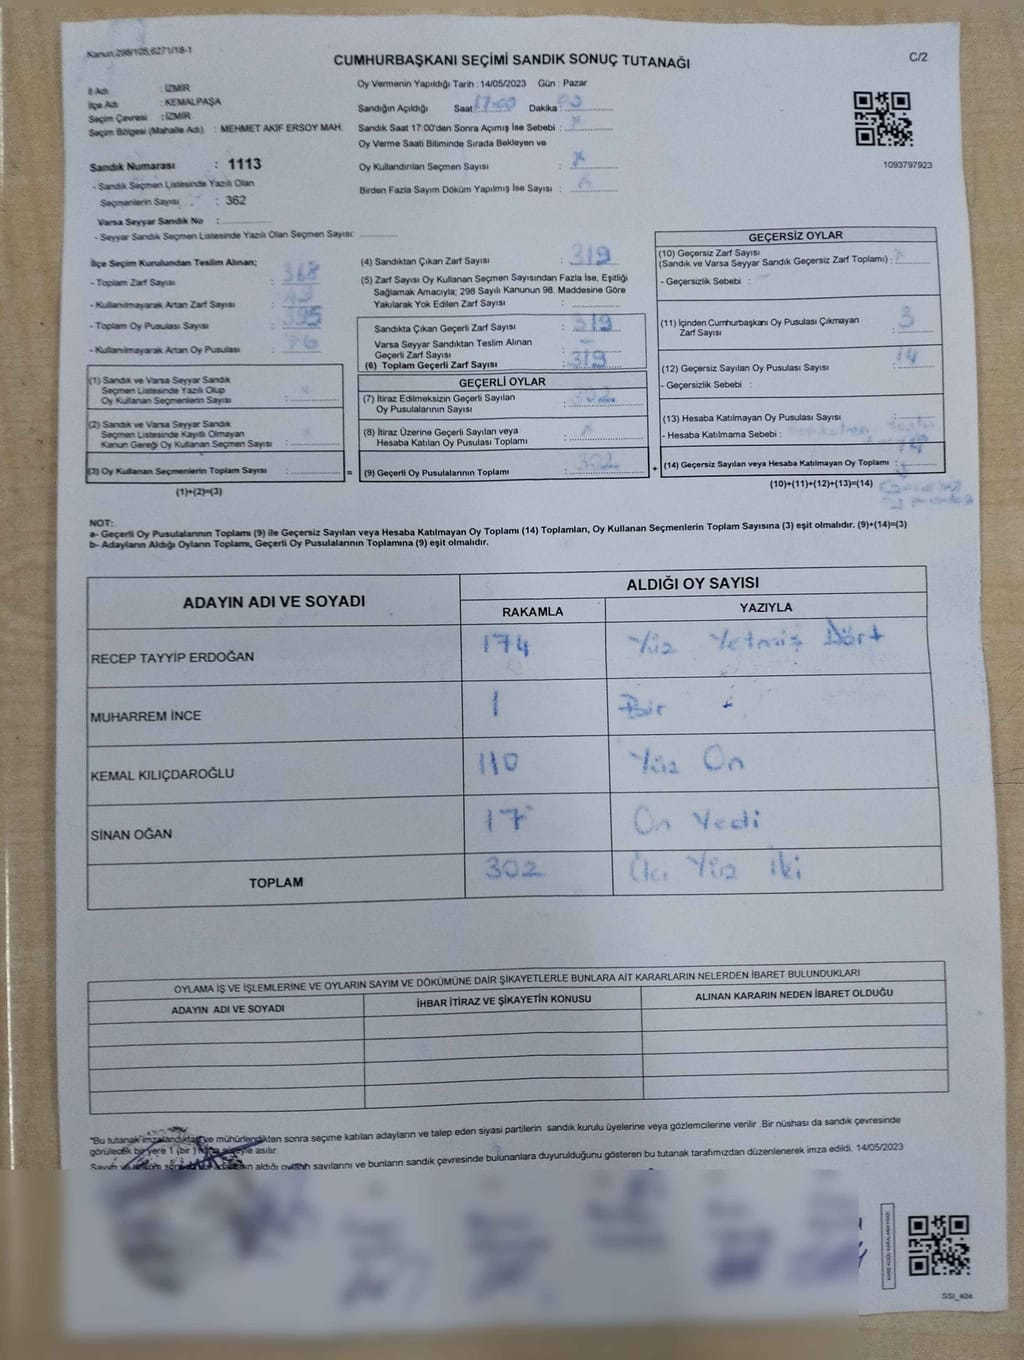 Kanun,298/105,6271/18-1
CUMHURBAŞKANI SEÇİMİ SANDIK SONUÇ TUTANAĞI
C/2
İl Adı : İZMİR
İlçe Adı : KEMALPAŞA
Seçim Çevresi : İZMİR
Seçim Bölgesi (Mahalle Adı) : MEHMET AKİF ERSOY MAH.
Sandık Numarası : 1113
- Sandık Seçmen Listesinde Yazılı Olan
Seçmenlerin Sayısı : 362
Varsa Seyyar Sandık No :
- Seyyar Sandık Seçmen Listesinde Yazılı Olan Seçmen Sayısı:
Oy Vermenin Yapıldığı Tarih : 14/05/2023 Gün : Pazar
Sandığın Açıldığı Saat 17:00 Dakika :
Sandık Saat 17:00'den Sonra Açımış İse Sebebi :
Oy Verme Saati Bitiminde Sırada Bekleyen ve
Oy Kullandırılan Seçmen Sayısı :
Birden Fazla Sayım Döküm Yapılmış İse Sayısı :
1093797923
İlçe Seçim Kurulundan Teslim Alınan;
- Toplam Zarf Sayısı : 368
- Kullanılmayarak Artan Zarf Sayısı :
- Toplam Oy Pusulası Sayısı : 395
- Kullanılmayarak Artan Oy Pusulası : 76
(1) Sandık ve Varsa Seyyar Sandık
Seçmen Listesinde Yazılı Olup
Oy Kullanan Seçmenlerin Sayısı :
(2) Sandık ve Varsa Seyyar Sandık
Seçmen Listesinde Kayıtlı Olmayan
Kanun Gereği Oy Kullanan Seçmen Sayısı :
(3) Oy Kullanan Seçmenlerin Toplam Sayısı : =
(1)+(2)=(3)
(4) Sandıktan Çıkan Zarf Sayısı : 319
(5) Zarf Sayısı Oy Kullanan Seçmen Sayısından Fazla İse, Eşitliği
Sağlamak Amacıyla; 298 Sayılı Kanunun 98. Maddesine Göre
Yakılarak Yok Edilen Zarf Sayısı :
Sandıkta Çıkan Geçerli Zarf Sayısı : 319
Varsa Seyyar Sandıktan Teslim Alınan
Geçerli Zarf Sayısı :
(6) Toplam Geçerli Zarf Sayısı : 319
GEÇERLİ OYLAR
(7) İtiraz Edilmeksizin Geçerli Sayılan
Oy Pusulalarının Sayısı : 302
(8) İtiraz Üzerine Geçerli Sayılan veya
Hesaba Katılan Oy Pusulası Toplamı :
(9) Geçerli Oy Pusulalarının Toplamı : 302 +
GEÇERSİZ OYLAR
(10) Geçersiz Zarf Sayısı
(Sandık ve Varsa Seyyar Sandık Geçersiz Zarf Toplamı) :
- Geçersizlik Sebebi :
(11) İçinden Cumhurbaşkanı Oy Pusulası Çıkmayan
Zarf Sayısı : 3
(12) Geçersiz Sayılan Oy Pusulası Sayısı : 14
- Geçersizlik Sebebi :
(13) Hesaba Katılmayan Oy Pusulası Sayısı :
- Hesaba Katılmama Sebebi :
(14) Geçersiz Sayılan veya Hesaba Katılmayan Oy Toplamı :
(10)+(11)+(12)+(13)=(14)
NOT:
a- Geçerli Oy Pusulalarının Toplamı (9) ile Geçersiz Sayılan veya Hesaba Katılmayan Oy Toplamı (14) Toplamları, Oy Kullanan Seçmenlerin Toplam Sayısına (3) eşit olmalıdır. (9)+(14)=(3)
b- Adayların Aldığı Oyların Toplamı, Geçerli Oy Pusulalarının Toplamına (9) eşit olmalıdır.
ADAYIN ADI VE SOYADI
ALDIĞI OY SAYISI
RAKAMLA YAZIYLA
RECEP TAYYİP ERDOĞAN 174 Yüz Yetmiş Dört
MUHARREM İNCE 1 Bir
KEMAL KILIÇDAROĞLU 110 Yüz On
SİNAN OĞAN 17 On Yedi
TOPLAM 302 Üç Yüz İki
OYLAMA İŞ VE İŞLEMLERİNE VE OYLARIN SAYIM VE DÖKÜMÜNE DAİR ŞİKAYETLERLE BUNLARA AİT KARARLARIN NELERDEN İBARET BULUNDUKLARI
ADAYIN ADI VE SOYADI İHBAR İTİRAZ VE ŞİKAYETİN KONUSU ALINAN KARARIN NEDEN İBARET OLDUĞU
"Bu tutanak imzalandıktan ve mühürlendikten sonra seçime katılan adayların ve talep eden siyasi partilerin sandık kurulu üyelerine veya gözlemcilerine verilir .Bir nüshası da sandık çevresinde
görülecek bir yere 1 (bir) süreyle asılır.
Sayım ve aldığı oyların sayılarını ve bunların sandık çevresinde bulunanlara duyurulduğunu gösteren bu tutanak tarafımızdan düzenlenerek imza edildi. 14/05/2023
SSI_404